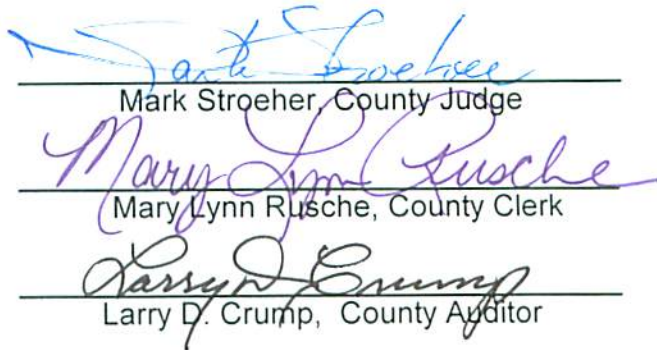 Mark Stroeher
Mark Stroeher, County Judge
Mary Lynn Rusche
Mary Lynn Rusche, County Clerk
Larry D. Crump
Larry D. Crump, County Auditor